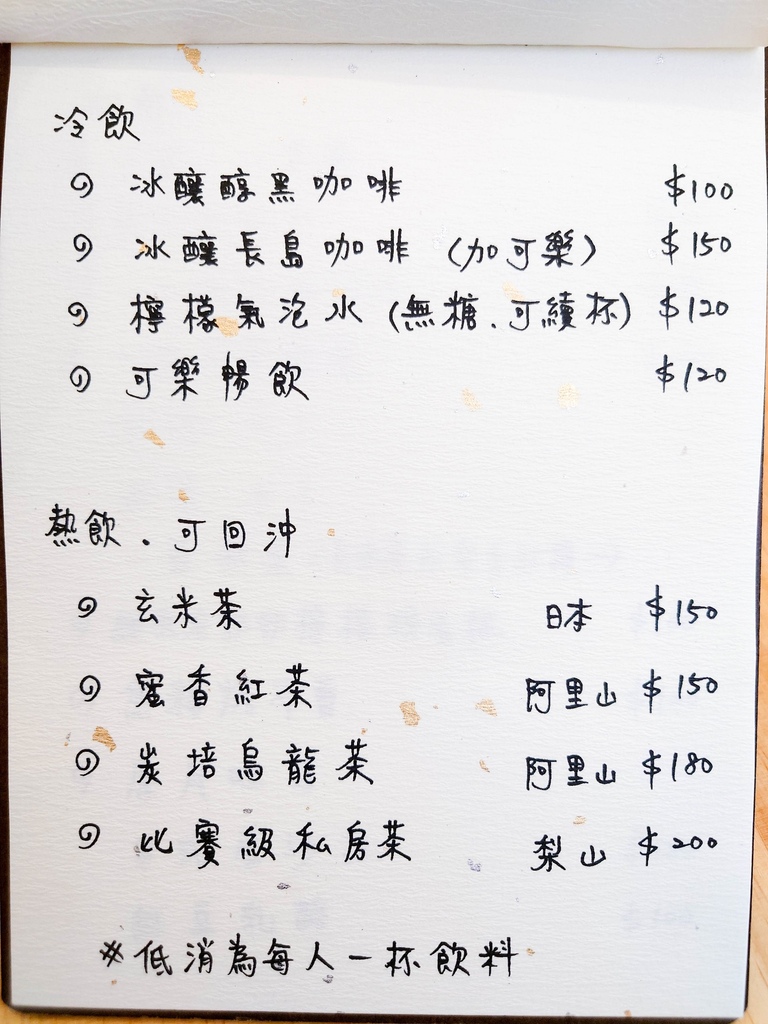 冷飲
冰釀醇黑咖啡 $100
冰釀長島咖啡 (加可樂) $150
檸檬氣泡水 (無糖.可續杯) $120
可樂暢飲 $120
熱飲.可回沖
玄米茶 日本 $150
蜜香紅茶 阿里山 $150
炭培烏龍茶 阿里山 $180
比賽級私房茶 梨山 $200
※低消為每人一杯飲料